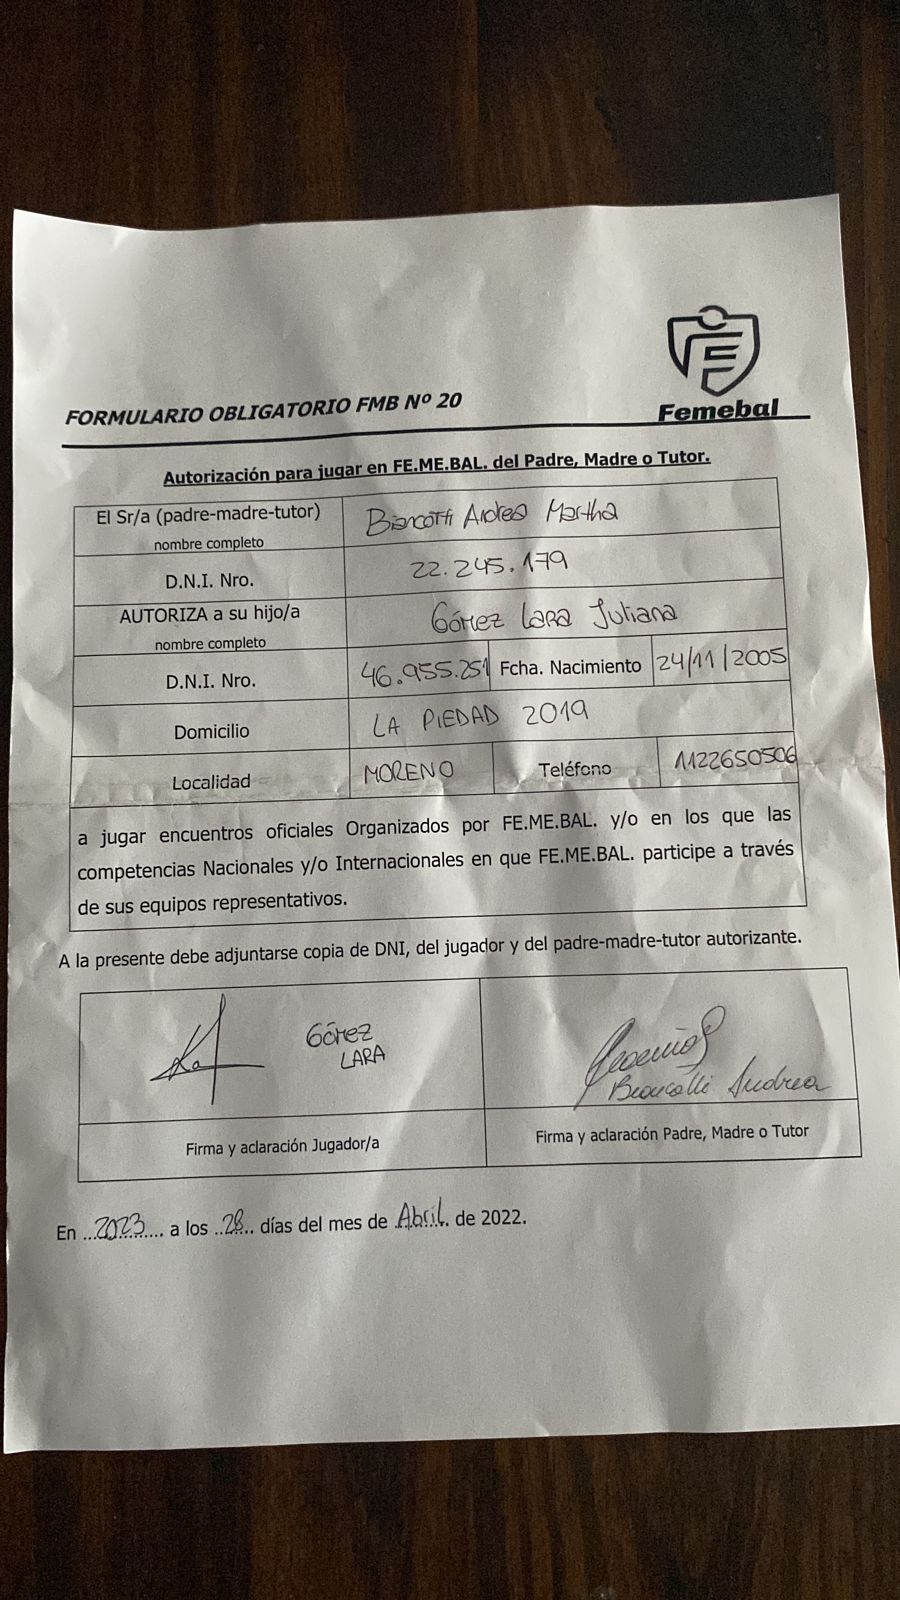 Femebal
FORMULARIO OBLIGATORIO FMB Nº 20
Autorización para jugar en FE.ME.BAL. del Padre, Madre o Tutor.
El Sr/a (padre-madre-tutor)
nombre completo
Biancotti Andrea Martha
D.N.I. Nro.
22.245.179
AUTORIZA a su hijo/a
nombre completo
Gómez Lara Juliana
D.N.I. Nro.
46.955.251
Fcha. Nacimiento
24/11/2005
Domicilio
LA PIEDAD 2019
Localidad
MORENO
Teléfono
1122650506
a jugar encuentros oficiales Organizados por FE.ME.BAL. y/o en los que las
competencias Nacionales y/o Internacionales en que FE.ME.BAL. participe a través
de sus equipos representativos.
A la presente debe adjuntarse copia de DNI, del jugador y del padre-madre-tutor autorizante.
GómEZ
LARA
Biancotti Andrea
Firma y aclaración Jugador/a
Firma y aclaración Padre, Madre o Tutor
En ...2023......... a los ..28... días del mes de .Abril.. de 2022.